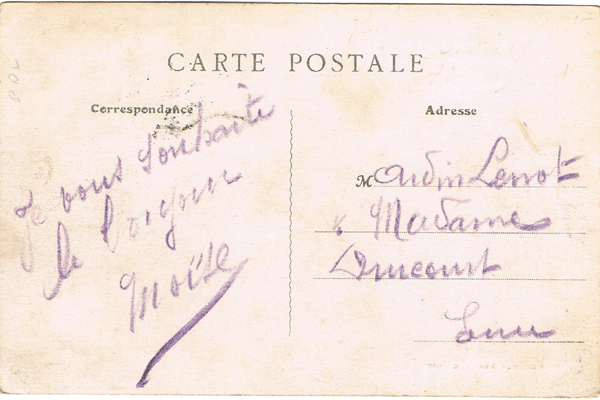 CARTE POSTALE
Correspondance
Je vous souhaite
le bonjour
Moïse
Adresse
M Ardin Lenot
& Madame
Drucourt
Eure